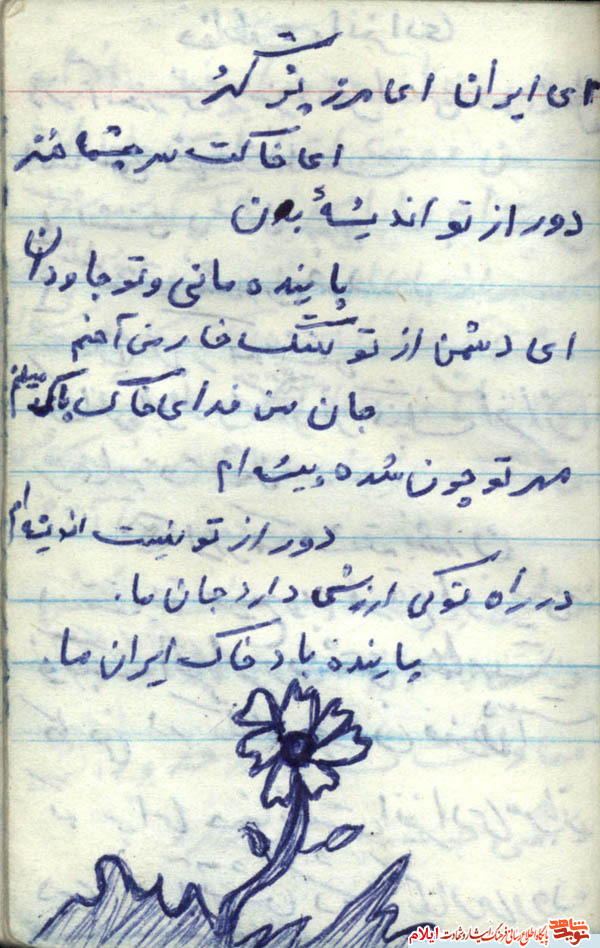 ای ایران ای مرز پر گهر
ای خاکت سرچشمه هنر
دور از تو اندیشهٔ بدن
پاینده مانی و تو جاودان
ای دشمن از تو سنگ خاره من آهنم
جان من فدای خاک پاک میهنم
مهر تو چون شده پیشه ام
دور از تو نیست اندیشه ام
در راه تو کی ارزشی دارد جان ما.
پاینده باد خاک ایران ما.
شاهد
نوید
پایگاه اطلاع رسانی فرهنگ ایثار و شهادت ایلام